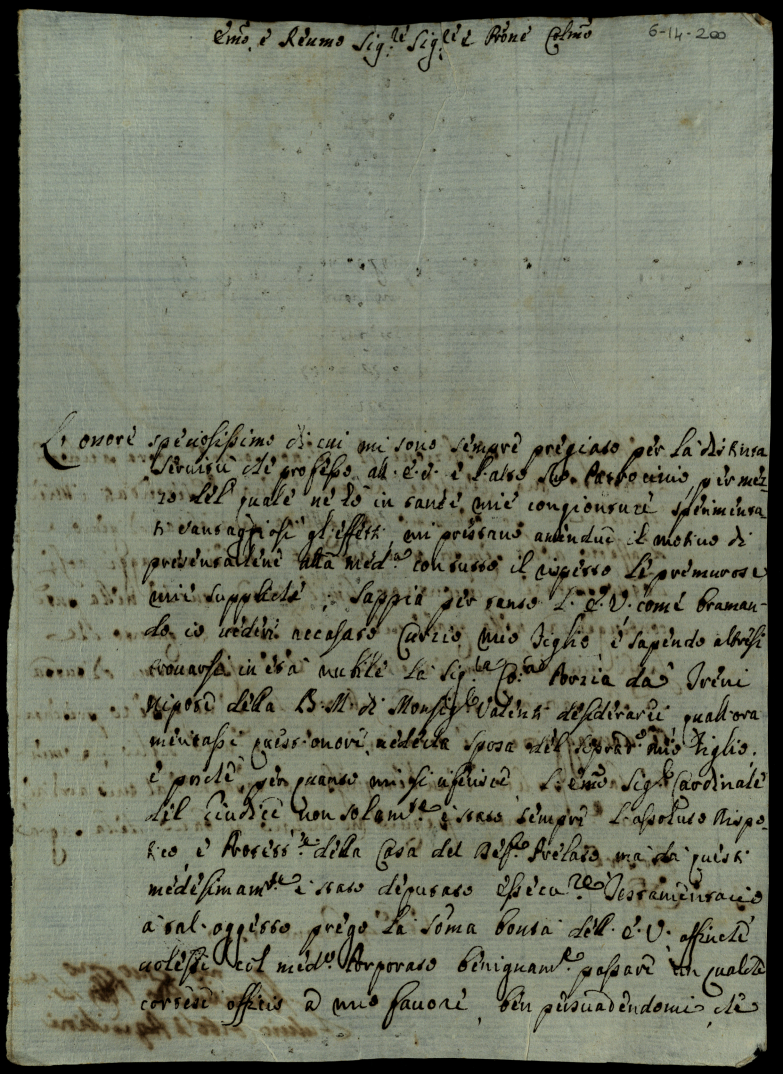 Emo, e Reumo Sig.re Sig.re e Prone Colmo
6-14-200
L'onore speciosissimo di cui mi sono sempre pregiato per la distinta
servitù che professo all' E.V. e l'alto suo Patrocinio, per mez-
zo del quale ne hò in tante mie congionture sperimenta-
ti vantaggiosi gl'effetti, mi prestano amendue il motivo di
presentarlene alla med.a con tutto il rispetto le premurose
mie suppliche; Sappia per tanto L'E.V. come braman-
do io vedere accasato Curzio mio Figlio, e sapendo altresi
trovarsi in età nubile la Sig.ra Co:sa Porzia da' Treni
Nipote della B.M. di Monsig.r Valenti desiderarei quall'ora
meritassi quest'onore, vederla sposa del soprad.o mio Figlio,
e perche, per quanto mi si asserisce L'Emo Sig.r Cardinale
del Giudice non solam.te è stato sempre l'assoluto Dispo-
tico e Protett.re della Casa del Def.o Prelato, ma da questi
medesimam.te è stato deputato essecu.re Testamentario
a tal oggetto prego la somma bontà dell' E.V. affinche
volesse col med.o Porporato benignam.te passare un qualche
cortese officio a mio favore, ben persuadendomi, che